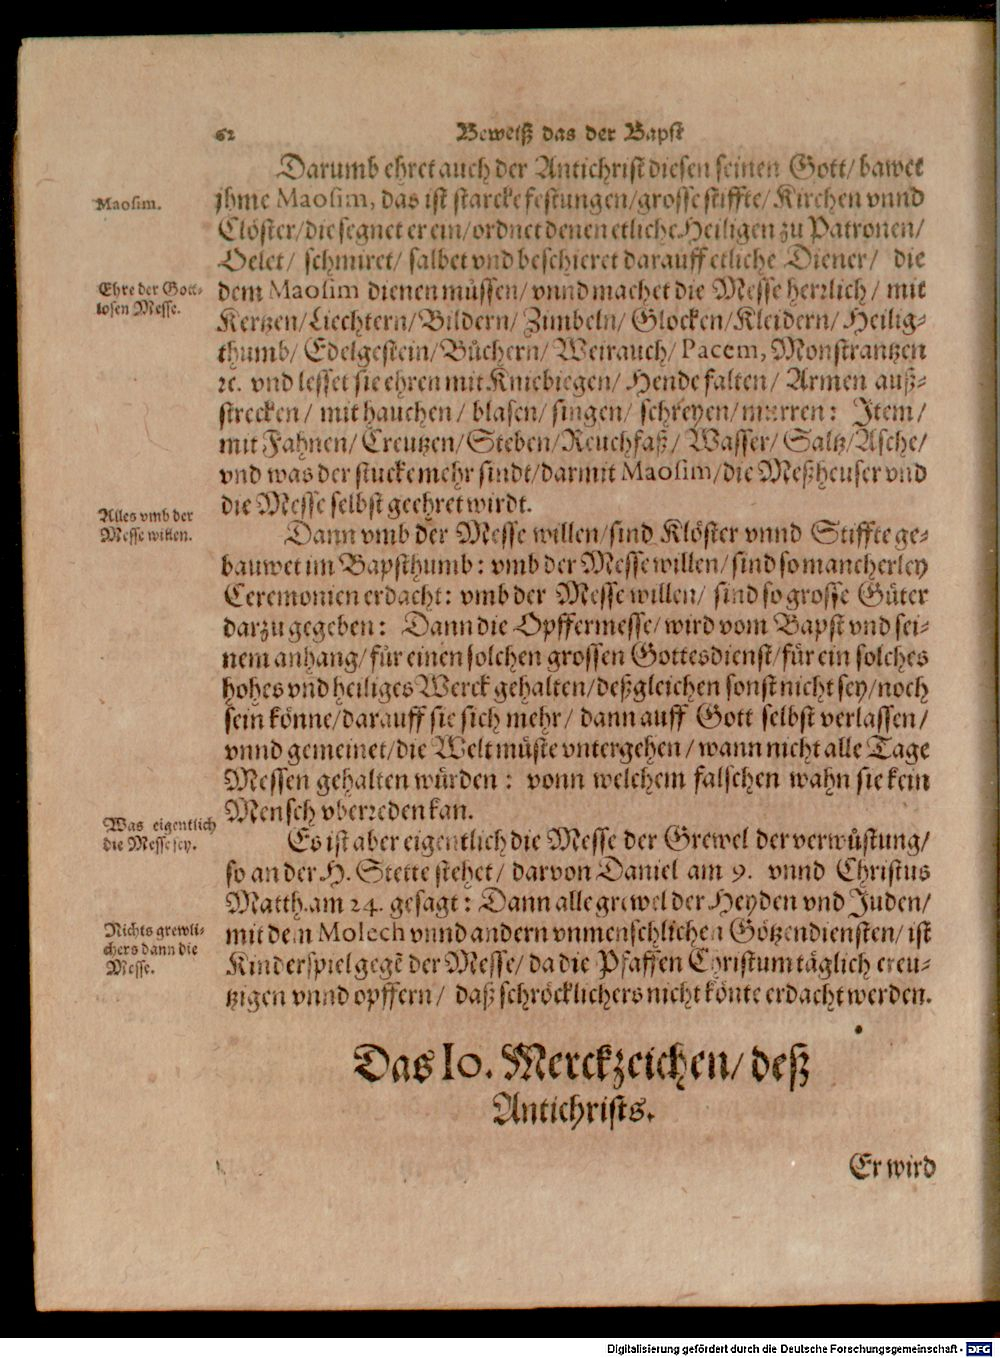 62 Beweiß das der Bapst
Darumb ehret auch der Antichrist diesen seinen Gott/ bawet
Maosim.
jhme Maosim, das ist starcke festungen/grosse stiffte/ Kirchen vnnd
Clöster/die segnet er ein/ordnet denen etliche Heiligen zu Patronen/
Oelet/ schmiret/ salbet vnd beschieret darauff etliche Diener/ die
Ehre der Gott-
losen Messe.
dem Maosim dienen müssen/ vnnd machet die Messe herrlich/ mit
Kertzen/Liechtern/Bildern/ Zimbeln/ Glocken/Kleidern/ Heilig-
thumb/ Edelgestein/Büchern/ Weirauch/ Pacem, Monstrantzen
ꝛc. vnd lesset sie ehren mit Kniebiegen/ Hende falten/ Armen auß-
strecken/ mit hauchen/ blasen/ singen/ schreyen/murren: Item/
mit Fahnen/ Creutzen/Steben/Reuchfaß/ Wasser/ Saltz/Asche/
vnd was der stucke mehr sindt/darmit Maosim/die Meßheuser vnd
die Messe selbst geehret wirdt.
Alles vmb der
Messe willen.
Dann vmb der Messe willen/sind Klöster vnnd Stiffte ge-
bauwet im Bapsthumb: vmb der Messe willen/ sind so mancherley
Ceremonien erdacht: vmb der Messe willen/ sind so grosse Güter
darzu gegeben: Dann die Opffermesse/ wird vom Bapst vnd sei-
nem anhang/für einen solchen grossen Gottesdienst/für ein solches
hohes vnd heiliges Werck gehalten/deßgleichen sonst nicht sey/noch
sein könne/darauff sie sich mehr/ dann auff Gott selbst verlassen/
vnnd gemeinet/die Welt müste vntergehen/ wann nicht alle Tage
Messen gehalten würden: vonn welchem falschen wahn sie kein
Mensch vberreden kan.
Was eigentlich
die Messe sey.
Es ist aber eigentlich die Messe der Grewel der verwüstung/
so an der H. Stette stehet/ darvon Daniel am 9. vnnd Christus
Matth. am 24. gesagt: Dann alle grewel der Heyden vnd Juden/
Nichts grewli-
chers dann die
Messe.
mit dem Molech vnnd andern vnmenschlichen Götzendiensten/ ist
Kinderspiel gegẽ der Messe/ da die Pfaffen Christum täglich creu-
tzigen vnnd opffern/ daß schröcklichers nicht könte erdacht werden.
Das 10. Merckzeichen/ deß
Antichrists.
Er wird
Digitalisierung gefördert durch die Deutsche Forschungsgemeinschaft - DFG